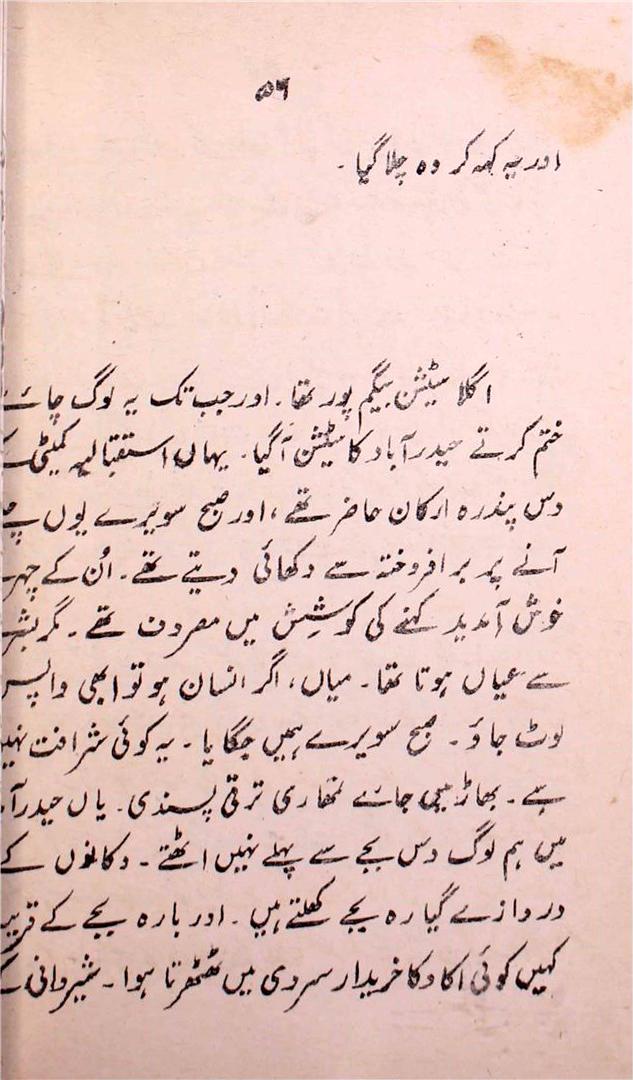 ۵۶
اور یہ کہہ کر وہ چلا گیا۔
اگلا سٹیشن بیگم پور تھا۔ اور جب تک یہ لوگ چائے
ختم کرتے حیدرآباد کا سٹیشن آگیا۔ یہاں استقبالیہ کمیٹی
دس پندرہ ارکان حاضر تھے، اور صبح سویرے یوں
آنے پر برافروختہ سے دکھائی دیتے تھے۔ اُن کے
خوش آمدید کہنے کی کوشِش میں مصروف تھے۔ مگر
سے عیاں ہوتا تھا۔ میاں، اگر انسان ہو تو ابھی واپس
لوٹ جاؤ۔ صبح سویرے ہمیں جگایا۔ یہ کوئی شرافت
ہے۔ بھاڑ میں جائے تمھاری ترقی پسندی۔ یاں
میں ہم لوگ دس بجے سے پہلے نہیں اٹھتے۔ دکانوں کے
دروازے گیارہ بجے کھلتے ہیں۔ اور بارہ بجے کے
کہیں کوئی اکا دکا خریدار سردی میں ٹھٹھرتا ہوا۔ شیروانی